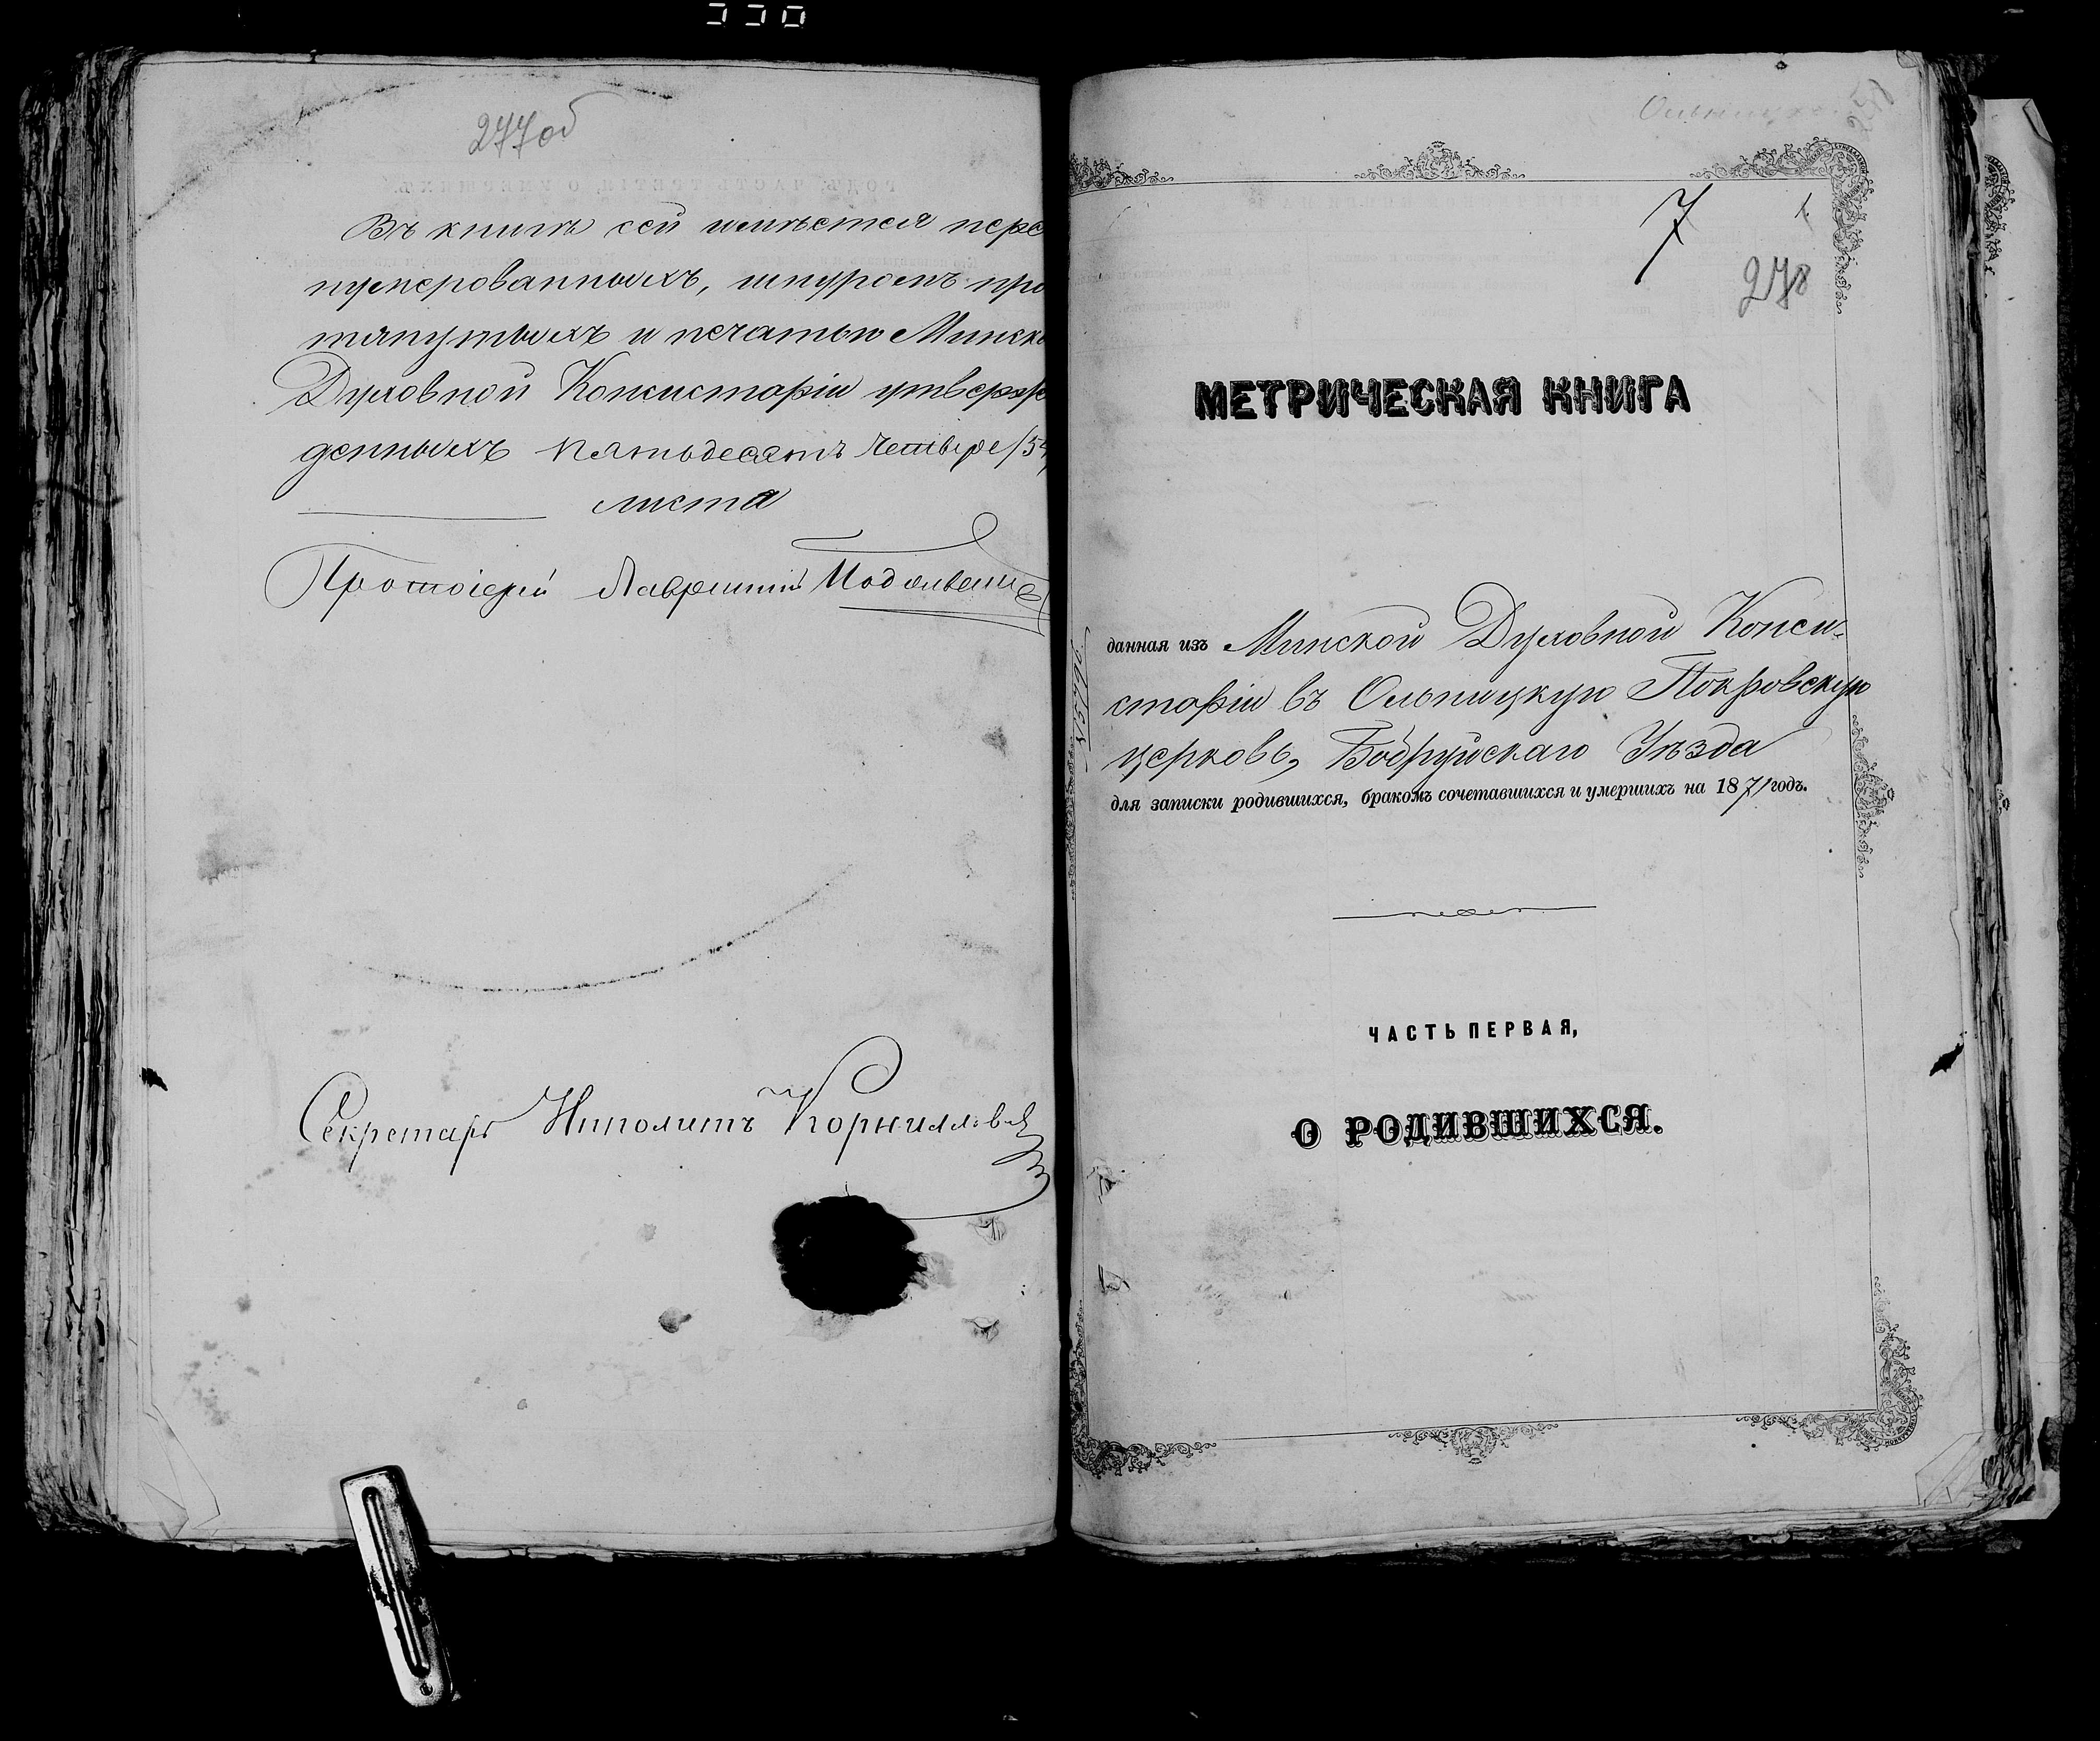 277об
Въ книгѣ сей имѣется пере
нумерованныхъ, шнуромъ про
тянутыхъ и печатью Минско
Духовной Консисторіи утверж
денныхъ пятьдесятъ четыре /54
листа
Протоіерей Лаврентій
Секретарь Иполитъ Корниловъ
7
278
МЕТРИЧЕСКАЯ КНИГА
данная изъ Минской Духовной Конси-
сторіи въ Ольницкую Покровскую
церковь, Бобруйскаго Уѣзда
для записки родившихся, бракомъ сочетавшихся и умершихъ на 1871 годъ.
ЧАСТЬ ПЕРВАЯ,
О РОДИВШИХСЯ.